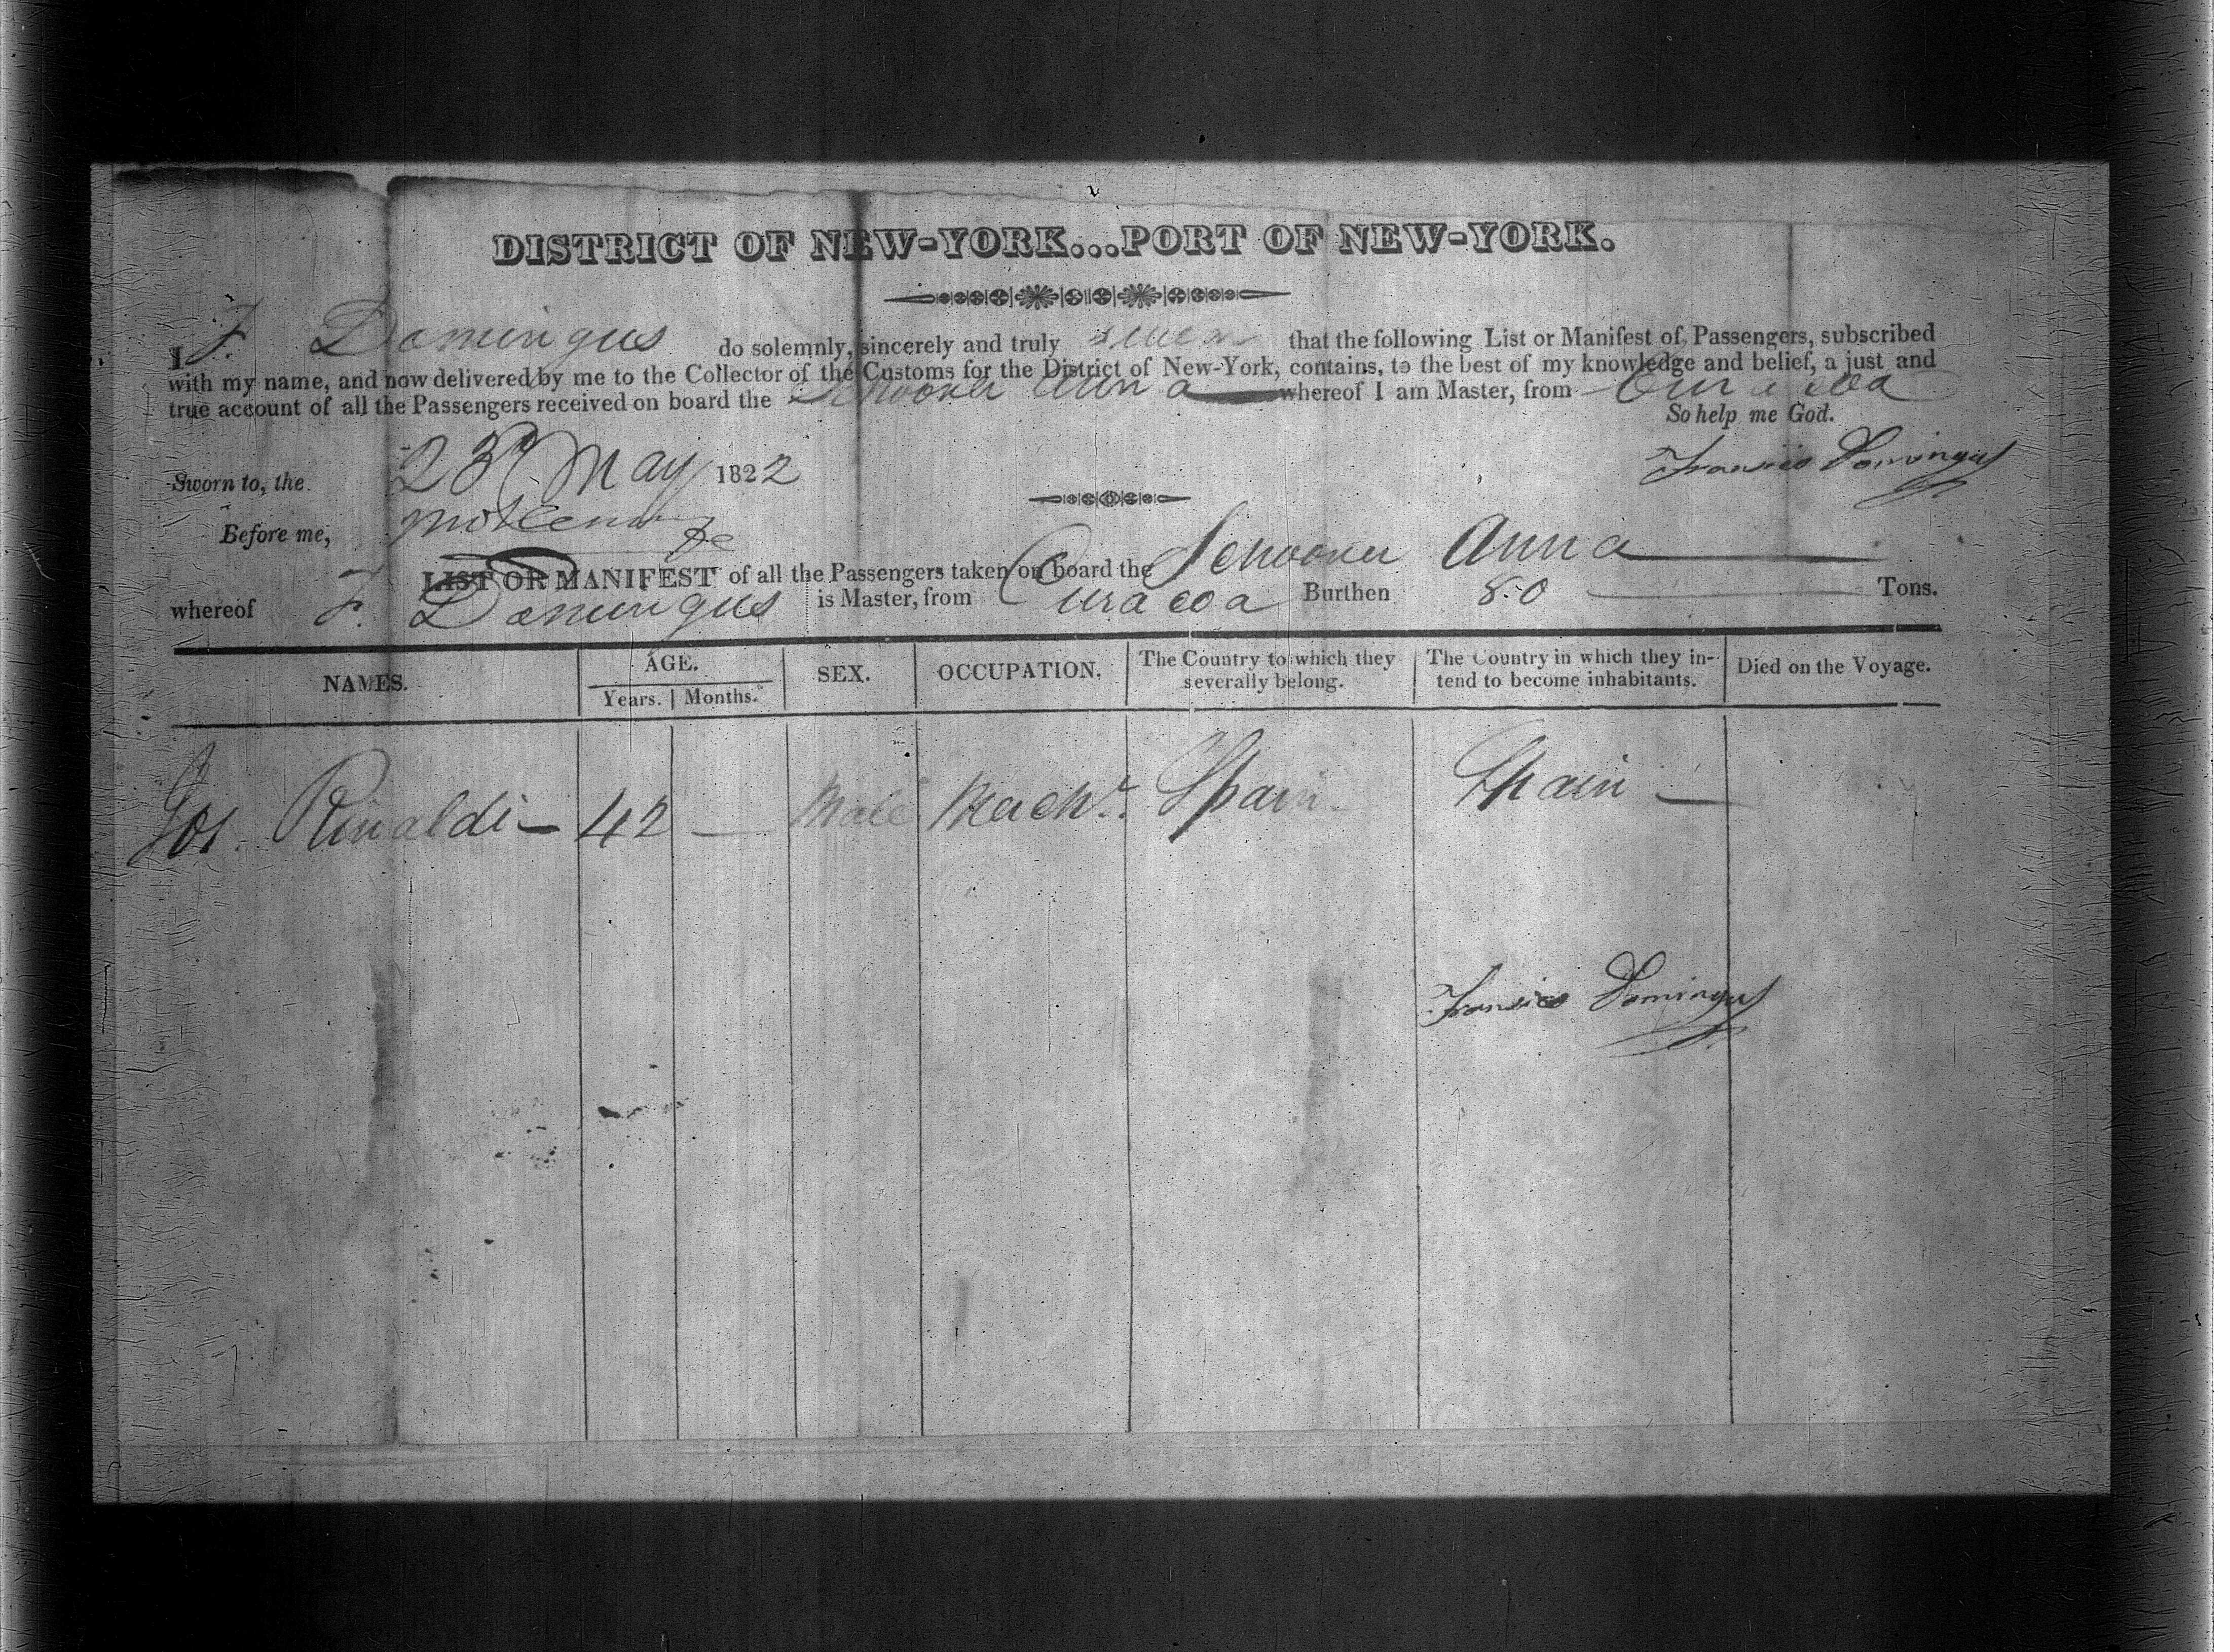 DISTRICT OF NEW-YORK...PORT OF NEW-YORK.
I F. Domingus do solemnly, sincerely and truly swear that the following List or Manifest of Passengers, subscribed
with my name, and now delivered by me to the Collector of the Customs for the District of New-York, contains, to the best of my knowledge and belief, a just and
true account of all the Passengers received on board the Schooner Anna whereof I am Master, from Curacoa
So help me God.
Sworn to, the 23d May 1822
Francis Domingus
Before me,
LIST OR MANIFEST of all the Passengers taken on board the Schooner Anna
whereof F. Domingus is Master, from Curacoa Burthen 80 Tons.
NAMES. AGE. Years. Months. SEX. OCCUPATION. The Country to which they severally belong. The Country in which they intend to become inhabitants. Died on the Voyage.
Jos. Rinaldi — 42 — Male Merch't. Spain Spain —
Francis Domingus